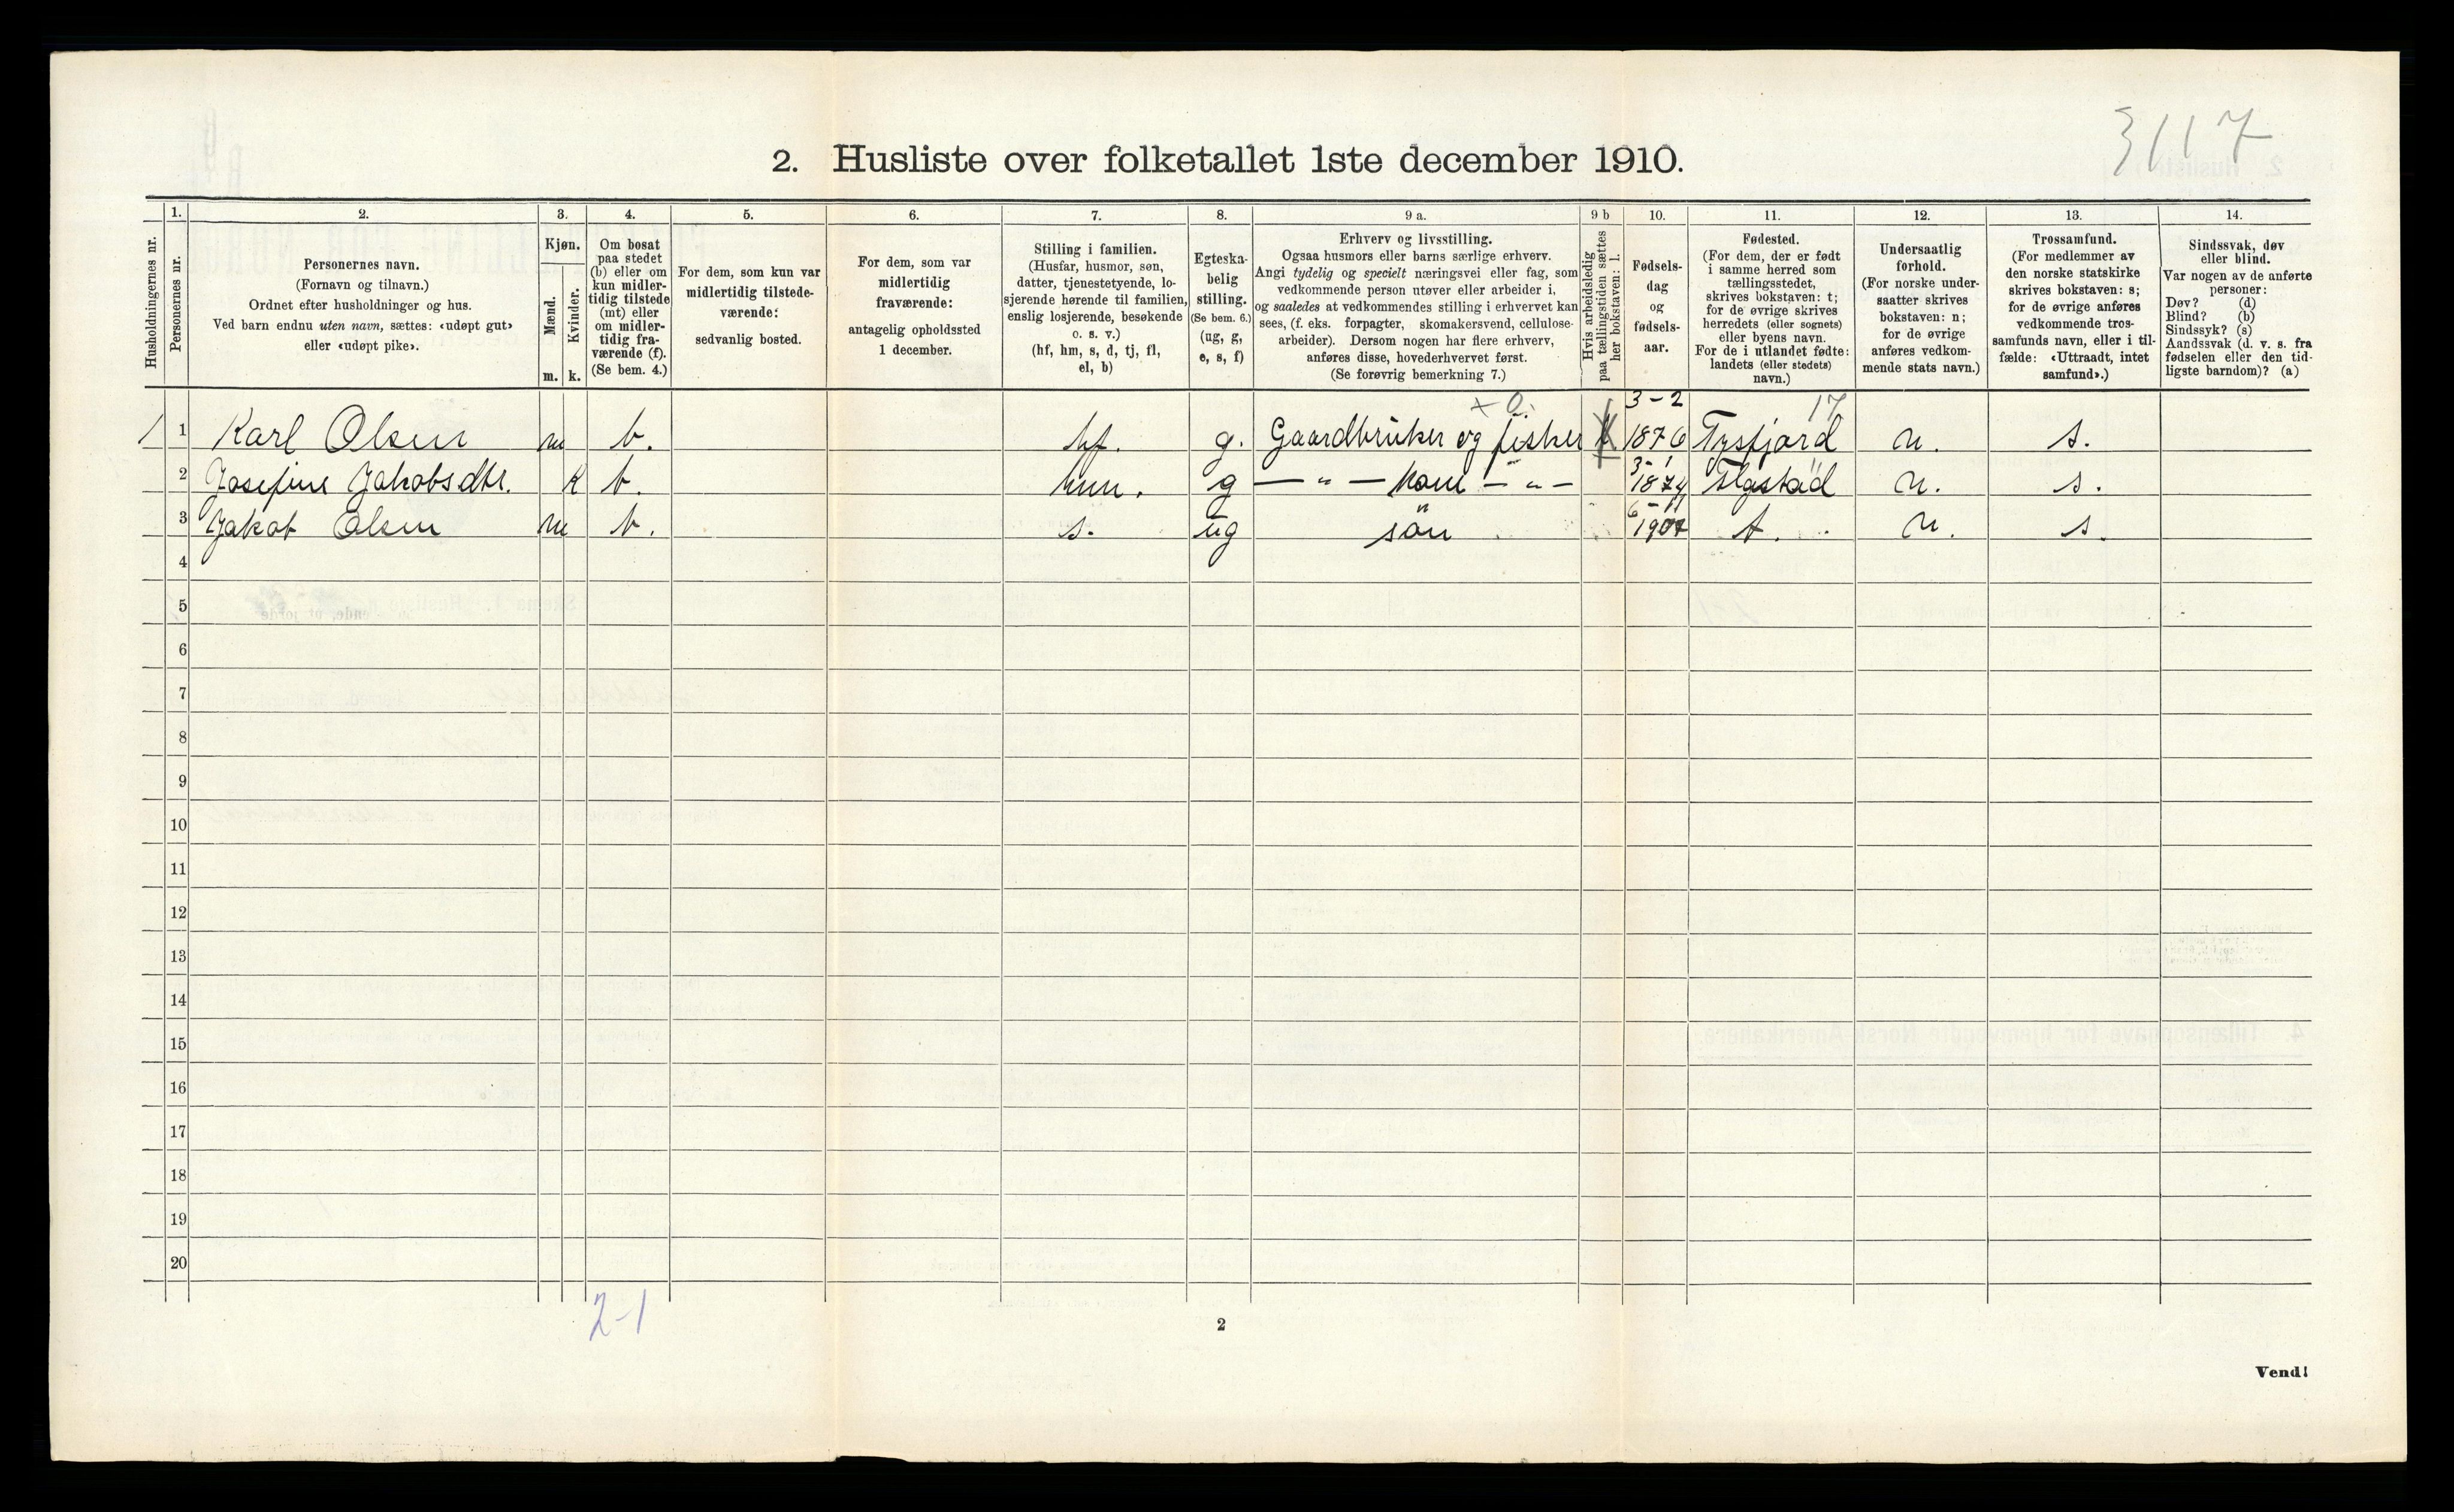 3117
2. Husliste over folketallet 1ste december 1910.
1. 2. 3. 4. 5. 6. 7. 8. 9 a. 9 b 10. 11. 12. 13. 14.
Husholdningernes nr.
Personernes nr.
Personernes navn.
(Fornavn og tilnavn.)
Ordnet efter husholdninger og hus.
Ved barn endnu uten navn, sættes: «udøpt gut»
eller «udøpt pike».
Kjøn.
Mænd.
Kvinder.
m. k.
Om bosat
paa stedet
(b) eller om
kun midler-
tidig tilstede
(mt) eller
om midler-
tidig fra-
værende (f).
(Se bem. 4.)
For dem, som kun var
midlertidig tilstede-
værende:
sedvanlig bosted.
For dem, som var
midlertidig
fraværende:
antagelig opholdssted
1 december.
Stilling i familien.
(Husfar, husmor, søn,
datter, tjenestetyende, lo-
sjerende hørende til familien,
enslig losjerende, besøkende
o. s. v.)
(hf, hm, s, d, tj, fl,
el, b)
Egteska-
belig
stilling.
(Se bem. 6.)
(ug, g,
e, s, f)
Erhverv og livsstilling.
Ogsaa husmors eller barns særlige erhverv.
Angi tydelig og specielt næringsvei eller fag, som
vedkommende person utøver eller arbeider i,
og saaledes at vedkommendes stilling i erhvervet kan
sees, (f. eks. forpagter, skomakersvend, cellulose-
arbeider). Dersom nogen har flere erhverv,
anføres disse, hovederhvervet først.
(Se forøvrig bemerkning 7.)
Hvis arbeidsledig
paa tællingstiden sættes
her bokstaven: l.
Fødsels-
dag
og
fødsels-
aar.
Fødested.
(For dem, der er født
i samme herred som
tællingsstedet,
skrives bokstaven: t;
for de øvrige skrives
herredets (eller sognets)
eller byens navn.
For de i utlandet fødte:
landets (eller stedets)
navn.)
Undersaatlig
forhold.
(For norske under-
saatter skrives
bokstaven: n;
for de øvrige
anføres vedkom-
mende stats navn.)
Trossamfund.
(For medlemmer av
den norske statskirke
skrives bokstaven: s;
for de øvrige anføres
vedkommende tros-
samfunds navn, eller i til-
fælde: «Uttraadt, intet
samfund».)
Sindssvak, døv
eller blind.
Var nogen av de anførte
personer:
Døv? (d)
Blind? (b)
Sindssyk? (s)
Aandssvak (d. v. s. fra
fødselen eller den tid-
ligste barndom)? (a)
x 0. 3-2 17
1 1 Karl Olsen m b. hf. g. Gaardbruker og fisker 1876 Tysfjord n. s.
3-1
2 Josefine Jakobsdtr. K b. hm. g — " — kone — " — 1874 n. s.
6-11
3 Jakob Olsen m b. s. ug " sön 1907 t. n. s.
4
5
6
7
8
9
10
11
12
13
14
15
16
17
18
19
20
2-1
2
Vend!